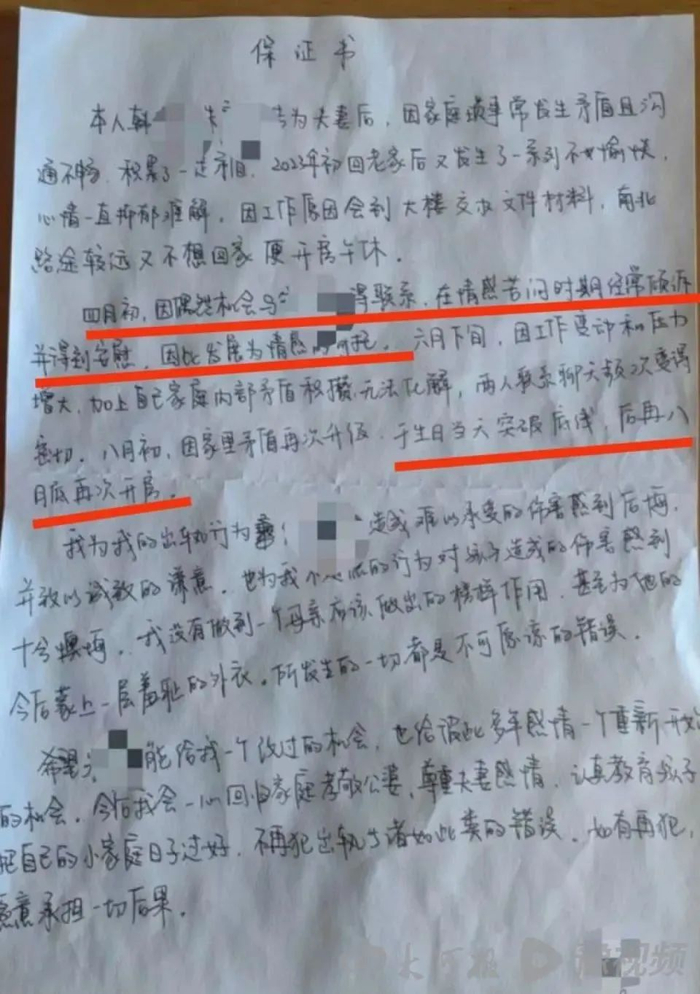 保证书
本人韩 与 结为夫妻后，因家庭琐事常发生矛盾且沟
通不畅，积累了一定 2023年初回老家后又发生了一系列不愉快，
心情一直抑郁难解，因工作原因会到大楼交办文件材料，南北
路途较远又不想回家便开房午休。
四月初，因偶然机会与 得联系，在情感苦闷时期经常倾诉
并得到安慰，因此发展为情感的 六月下旬，因工作变动和压力
增大，加上自己家庭内部矛盾积攒无法化解，两人联系聊天频次变得
密切。八月初，因家里矛盾再次升级，于生日当天突破底线，后再八
月底再次开房。
我为我的出轨行为 造成难以承受的伤害感到后悔，
并致以诚致的谦意，也为我 的行为对孩子造成的伤害感到
十分懊悔，我没有做到一个母亲应该做出的榜样作用，甚至为他的
今后蒙上一层羞耻的外衣，所发生的一切都是不可原谅的错误。
希望 能给我一个改过的机会，也给彼此多年感情一个重新开始
的机会，今后我会一心回归家庭孝敬公婆，尊重夫妻感情，认真教育孩子
把自己的小家庭日子过好，不再犯出轨 诸如此类的错误，如有再犯，
愿意承担一切后果。
大河报 视频